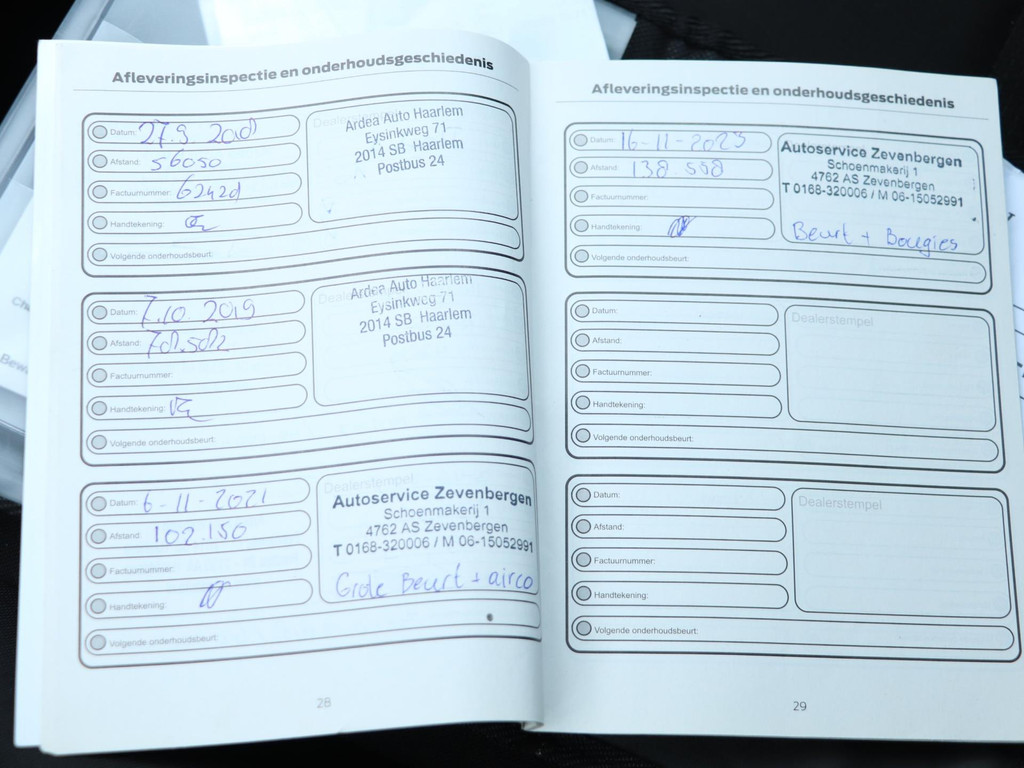 Afleveringsinspectie en onderhoudsgeschiedenis
Datum:
Afstand: 56050
Factuurnummer:
Handtekening:
Volgende onderhoudsbeurt:
Ardea Auto Haarlem
Eysinkweg 71
2014 SB Haarlem
Postbus 24
Datum: 7.10.2019
Afstand:
Factuurnummer:
Handtekening:
Volgende onderhoudsbeurt:
Ardea Auto Haarlem
Eysinkweg 71
2014 SB Haarlem
Postbus 24
Datum: 6-11-2021
Afstand: 102.150
Factuurnummer:
Handtekening:
Volgende onderhoudsbeurt:
Dealerstempel
Autoservice Zevenbergen
Schoenmakerij 1
4762 AS Zevenbergen
T 0168-320006 / M 06-15052991
Grote Beurt + airco
28
Afleveringsinspectie en onderhoudsgeschiedenis
Datum: 16-11-2023
Afstand: 138.598
Factuurnummer:
Handtekening:
Volgende onderhoudsbeurt:
Autoservice Zevenbergen
Schoenmakerij 1
4762 AS Zevenbergen
T 0168-320006 / M 06-15052991
Beurt + Bougies
Datum:
Afstand:
Factuurnummer:
Handtekening:
Volgende onderhoudsbeurt:
Dealerstempel
Datum:
Afstand:
Factuurnummer:
Handtekening:
Volgende onderhoudsbeurt:
Dealerstempel
29